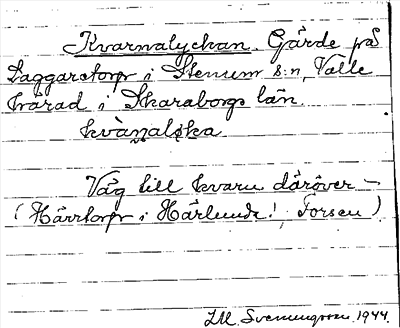 Kvarnalyckan. Gärde på
Daggarstorp i Stenum s:n, Valle
härad i Skaraborgs län.
kvànaløka.
Väg till kvarn däröver –
(Härrtorp i Härlunda!, Forsen)
S. M. Svenungsson 1944.